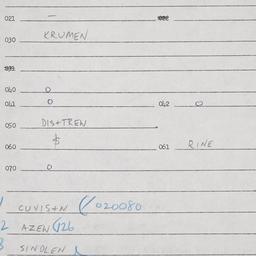 021 —
030 KRUMEN
040 O
041 O 042 O
050 DIS+TREN
060 $ 061 RINE
070 O
1 CUVIS+N (/020080
2 AZEN (/126
3 SINDLEN